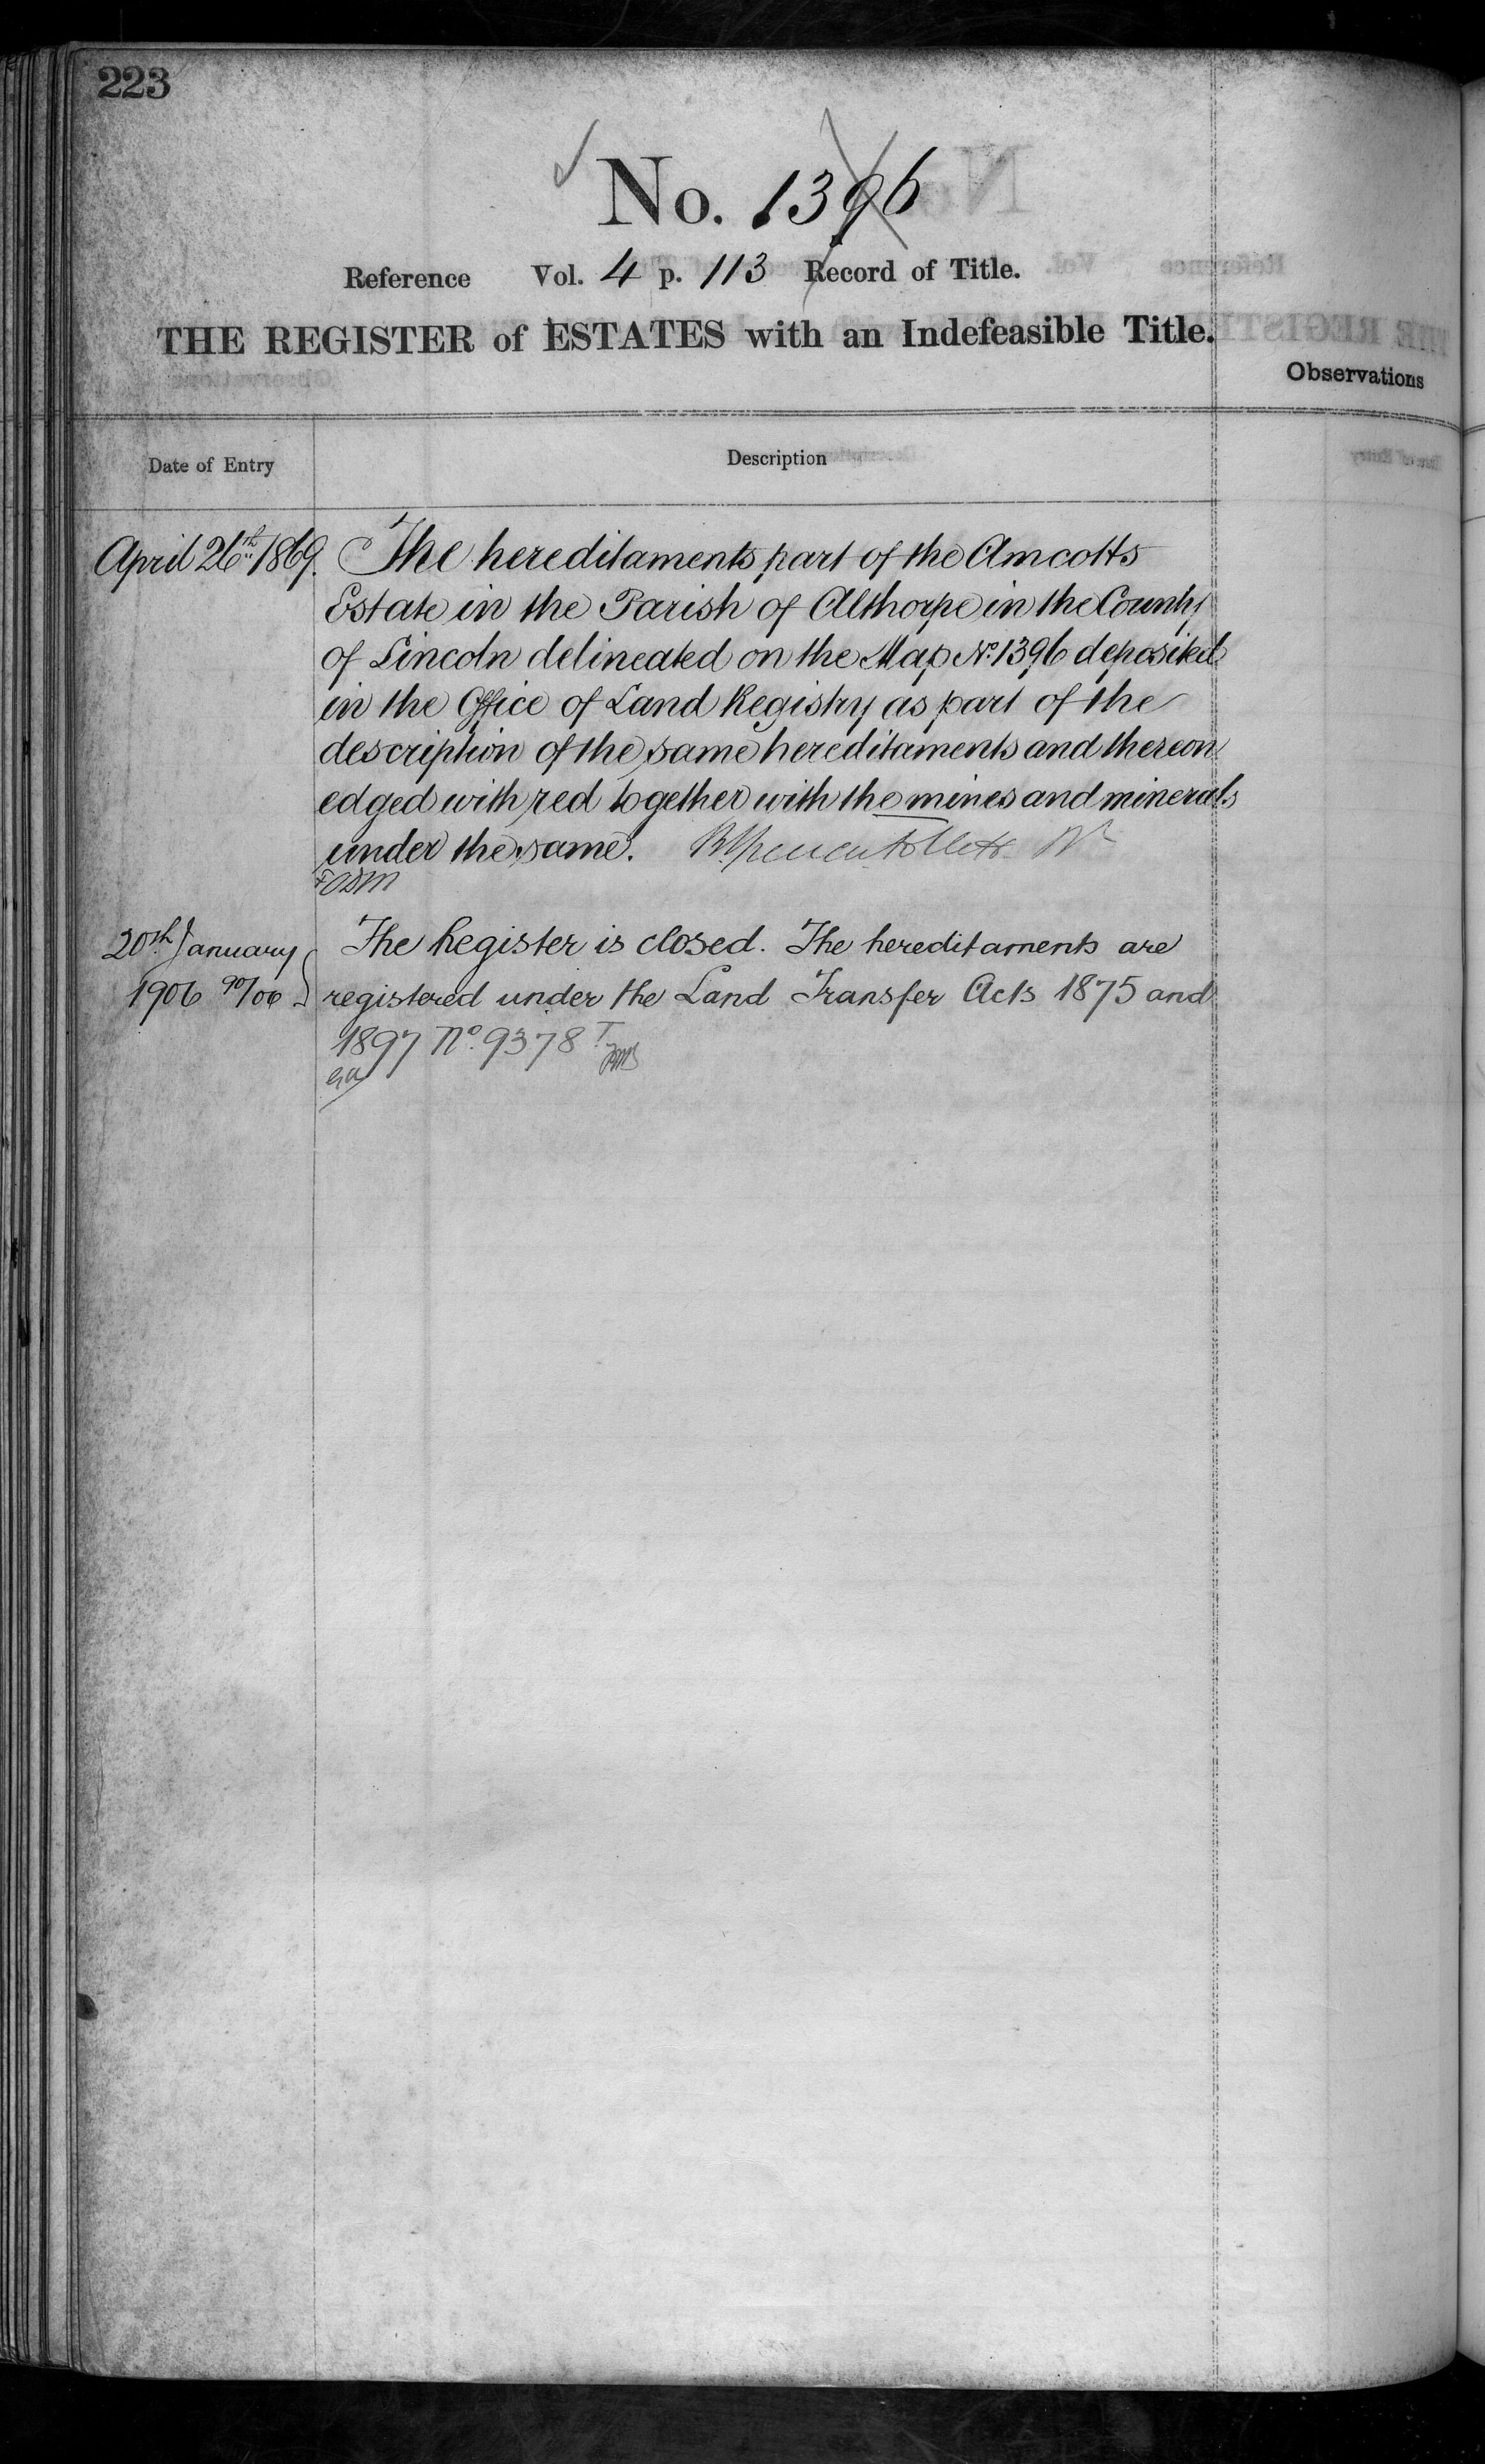 223
No. 1396
Reference Vol. 4 p. 113 Record of Title.
THE REGISTER of ESTATES with an Indefeasible Title.
Observations
Date of Entry
Description
April 26th 1869. The hereditaments part of the Amcotts
Estate in the Parish of Althorpe in the County
of Lincoln delineated on the Map No. 1396 deposited
in the Office of Land Registry as part of the
description of the same hereditaments and thereon
edged with red together with the mines and minerals
under the same.
20th January The Register is closed. The hereditaments are
1906 90/06 registered under the Land Transfer Acts 1875 and
1897 No. 9378